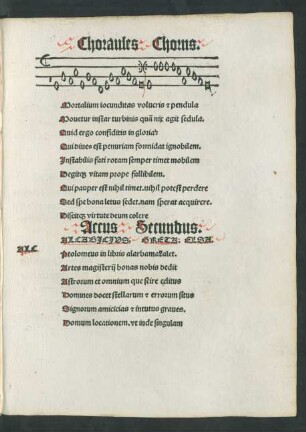 Choraules Chorus.
Mortalium iocunditas volucris ⁊ pendula
Mouetur instar turbinis quã nix agit sedula.
Quid ergo confiditis in gloria?
Qui diues est penuriam formidat ignobilem.
Instabilis fati rotam semper timet mobilem
Degitq; vitam prope fallibilem.
Qui pauper est nihil timet. nihil potest perdere
Sed spe bona letus sedet. nam sperat acquirere.
Discitq; virtute deum colere
Actus Secundus.
ALCABICIVS: GRETA: ELSA
ALC
Ptolomeus in libris alarbamakalet.
Artes magisterij bonas nobis dedit
Astrorum et omnium que scire celitus
Homines docet stellarum ⁊ errorum situs
Signorum amicicias ⁊ intuitus graues.
Domum locationem. vt inde singulam